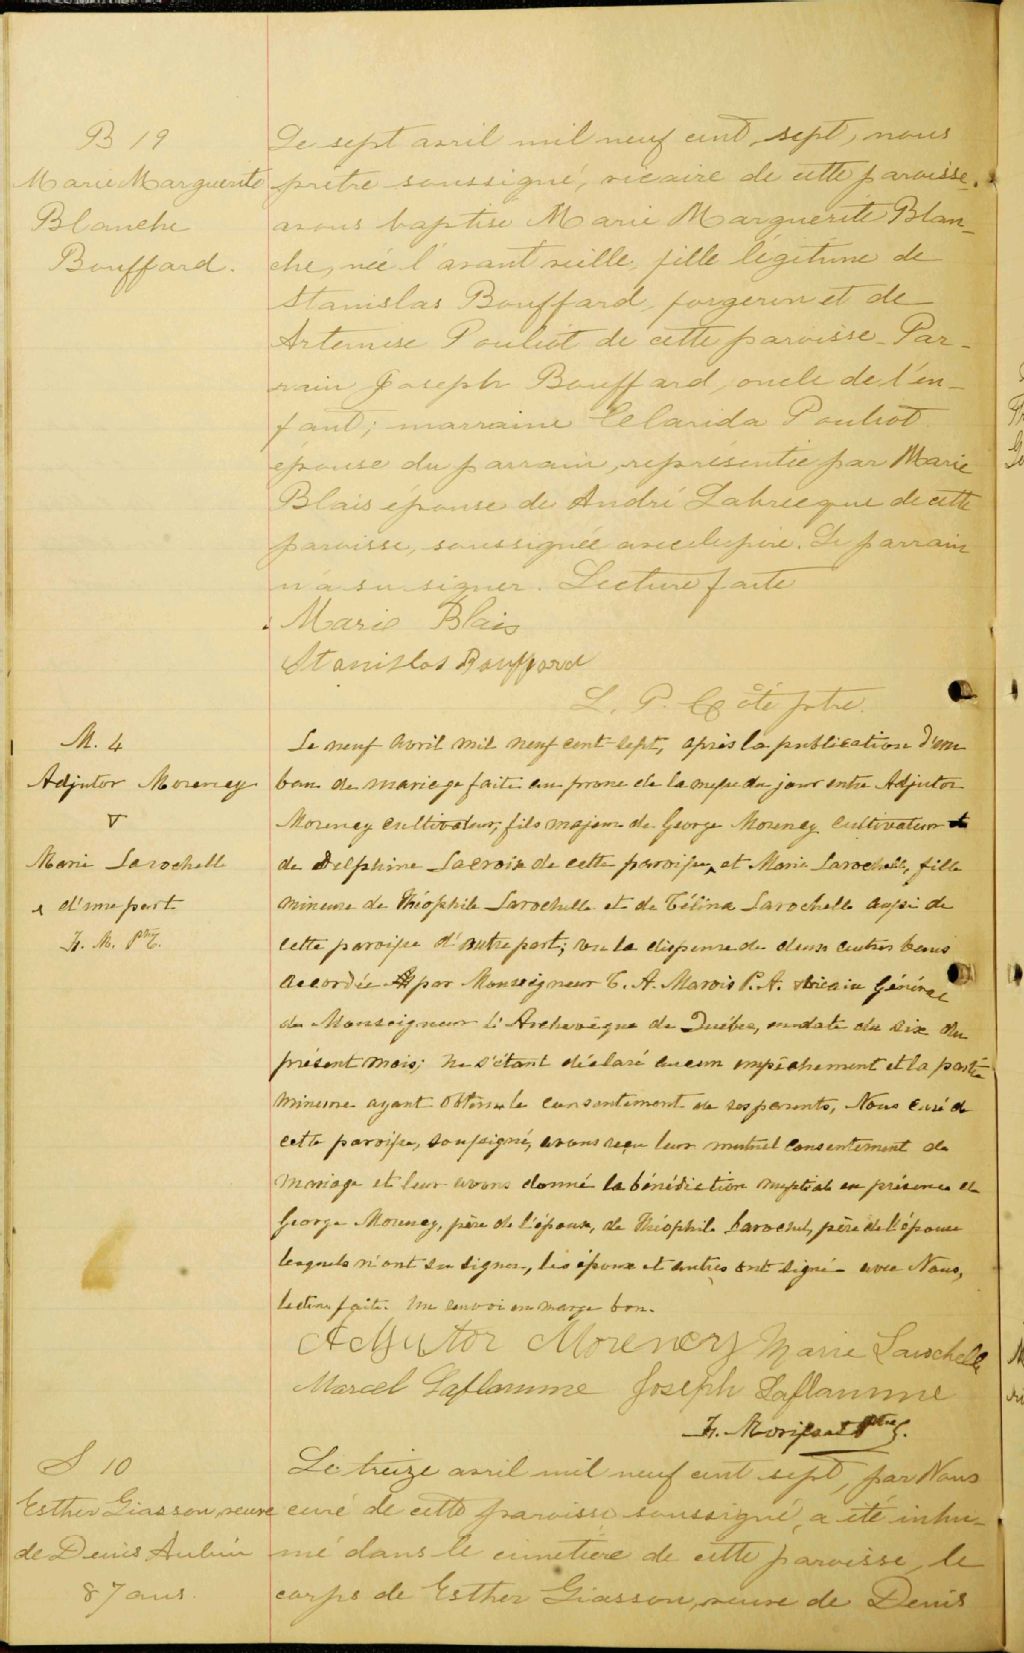 B 19
Marie Marguerite
Blanche
Bouffard.
Le sept avril mil neuf cent sept, nous
prêtre soussigné, vicaire de cette paroisse,
avons baptisé Marie Marguerite Blan-
che, née l'avant veille, fille légitime de
Stanislas Bouffard, forgeron et de
Artemise Pouliot de cette paroisse - Par-
rain Joseph Bouffard, oncle de l'en-
fant; marraine Clarida Pouliot
épouse du parrain, représentée par Marie
Blais épouse de André Labrecque de cette
paroisse, soussignée avec le père. Le parrain
n'a su signer. Lecture faite
Marie Blais
Stanislas Bouffard
L. P. Côté ptre.
M. 4
Adjutor Morency
V
Marie Larochelle
x d'une part
H. M. Ptre
Le neuf avril mil neuf cent sept, après la publication d'un
ban de mariage faite au prone de la messe du jour entre Adjutor
Morency cultivateur, fils majeur de George Morency cultivateur et
de Delphine Lacroix de cette paroisse, x et Marie Larochelle, fille
mineure de Théophile Larochelle et de Célina Larochelle aussi de
cette paroisse d'autre part; vu la dispense de deux autres bans
accordée par Monseigneur C. A. Marois P. A. Vicaire Général
de Monseigneur l'Archevêque de Québec, en date du six du
présent mois; ne s'étant déclaré aucun empêchement et la partie
mineure ayant obtenu le consentement de ses parents, Nous curé de
cette paroisse, soussigné, avons reçu leur mutuel consentement de
mariage et leur avons donné la bénédiction nuptiale en présence de
George Morency, père de l'époux, de Théophile Larochel, père de l'épouse
lesquels n'ont su signer, les époux et autres ont signé avec Nous,
lecture faite. Un renvoi en marge bon.
Adjutor Morency Marie Larochelle
Marcel Laflamme Joseph Laflamme
H. Morisset Ptre
S 10
Esther Giasson, veuve
de Denis Aubin
87 ans.
Le treize avril mil neuf cent sept, par Nous
curé de cette paroisse soussigné, a été inhu-
mé dans le cimetière de cette paroisse, le
corps de Esther Giasson, veuve de Denis